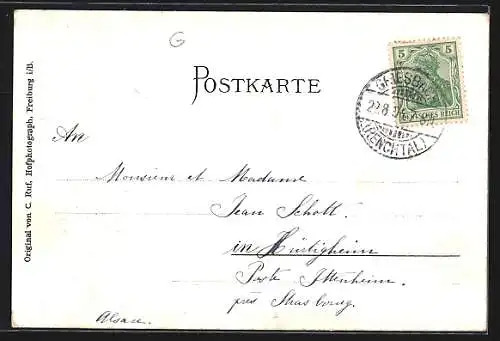 G
POSTKARTE
5 5
DEUTSCHES REICH
GRIESBACH
22.8
(RENCHTAL)
An
Monsieur et Madame
Jean Schott.
in Hürtigheim
Poste Ittenheim.
près Strasbourg.
Alsace.
Original von C. Ruf, Hofphotograph, Freiburg i/B.